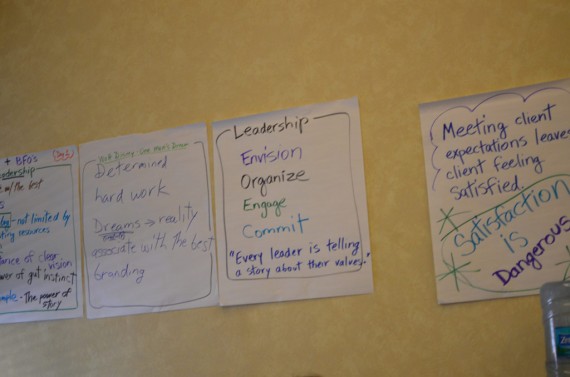 + BFO's
Leadership
w/the best
not limited by
ting resources
tance of clear
vision
wer of gut instinct
mple - The power of
story
Walt Disney: One Man's Dream
Determined
hard work
Dreams → reality
associate with the best
branding
Leadership
Envision
Organize
Engage
Commit
"Every leader is telling
a story about their values."
Meeting client
expectations leaves
client feeling
satisfied.
Satisfaction
is
Dangerous